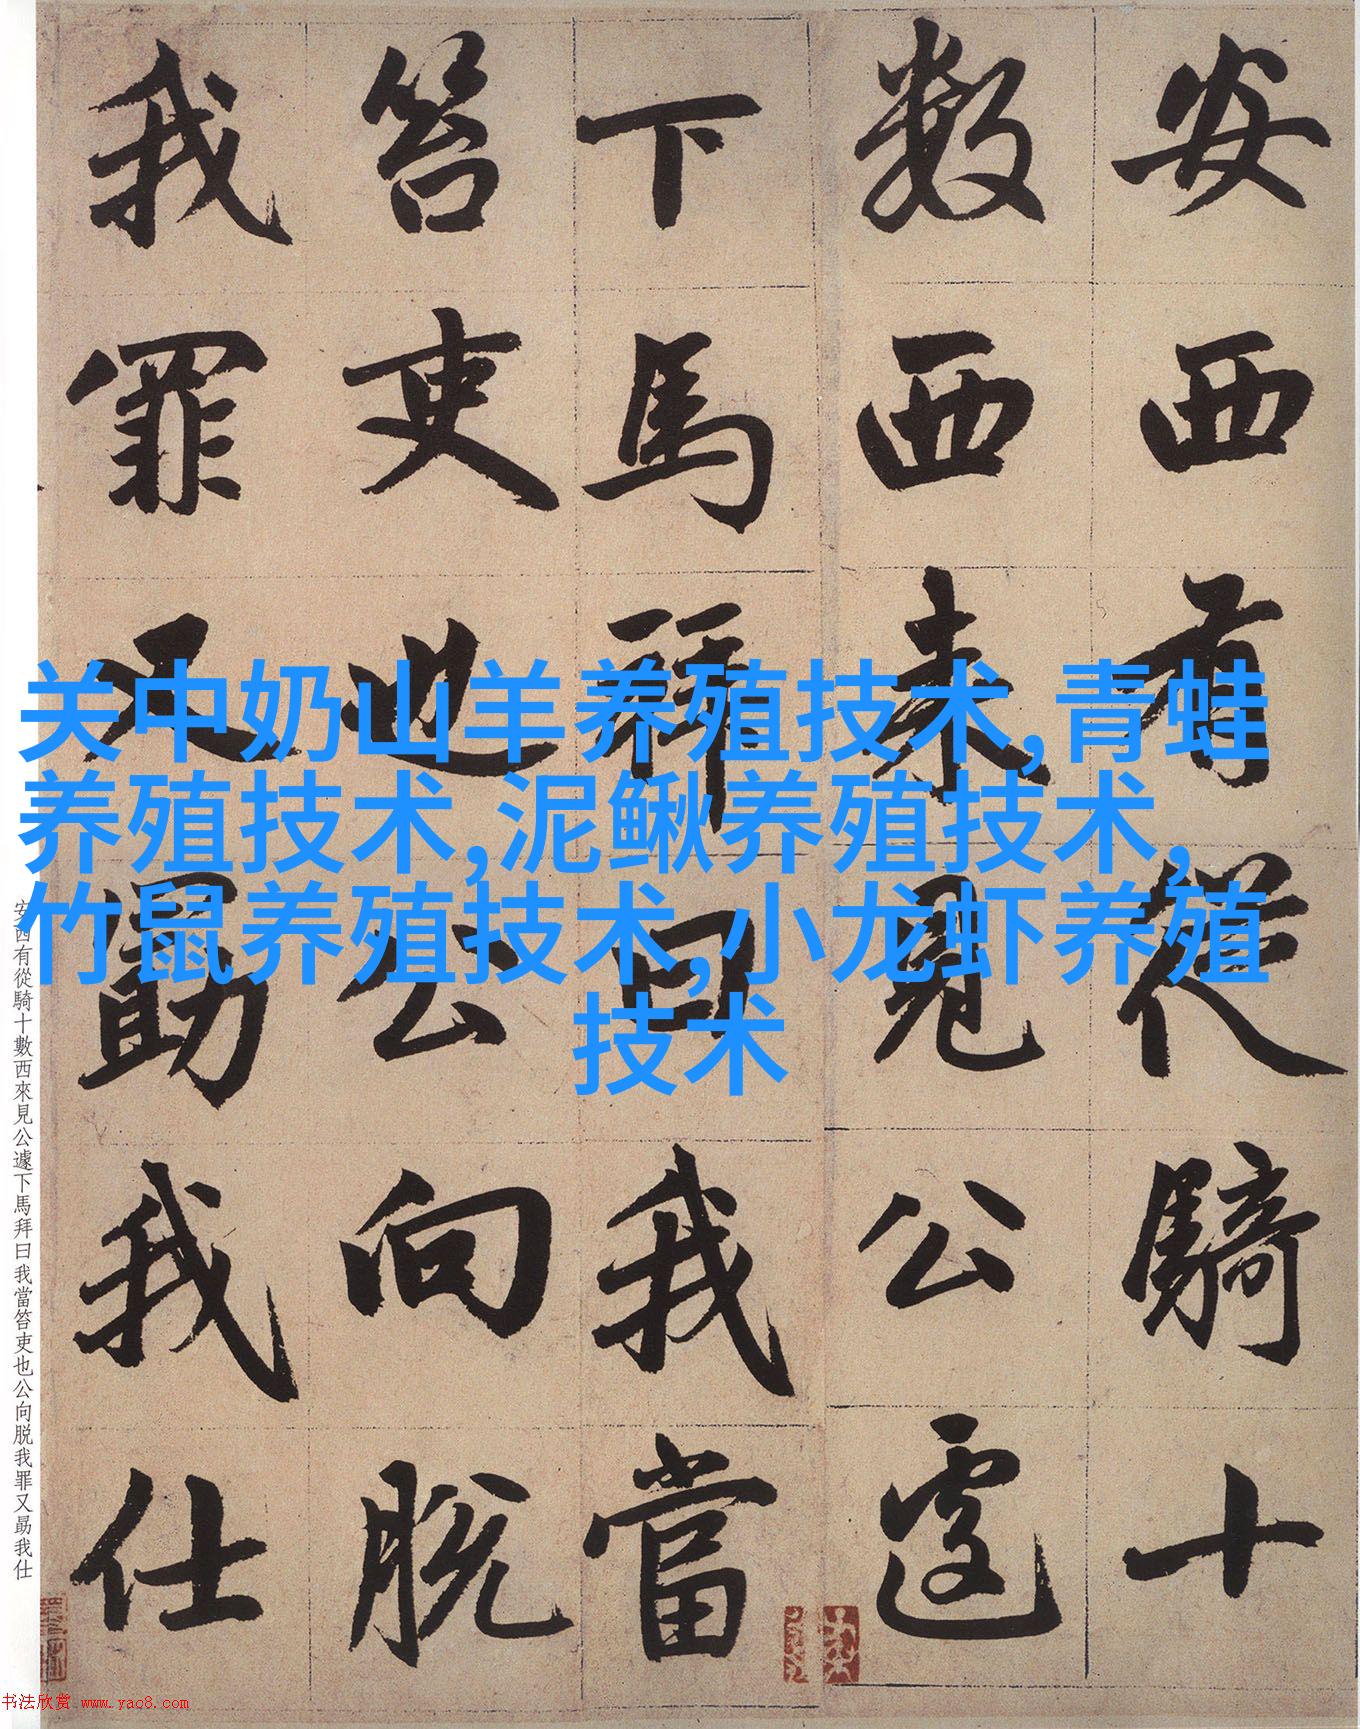 安西有從騎十
數西来見公遽
下馬拜曰我當
笞吏也公向脱
我罪又勗我仕
关中奶山羊养殖技术,青蛙
养殖技术,泥鳅养殖技术,
竹鼠养殖技术,小龙虾养殖
技术
安西有從騎十數西來見公遽下馬拜曰我當笞吏也公向脱我罪又勗我仕
书法欣赏 www.yac8.com